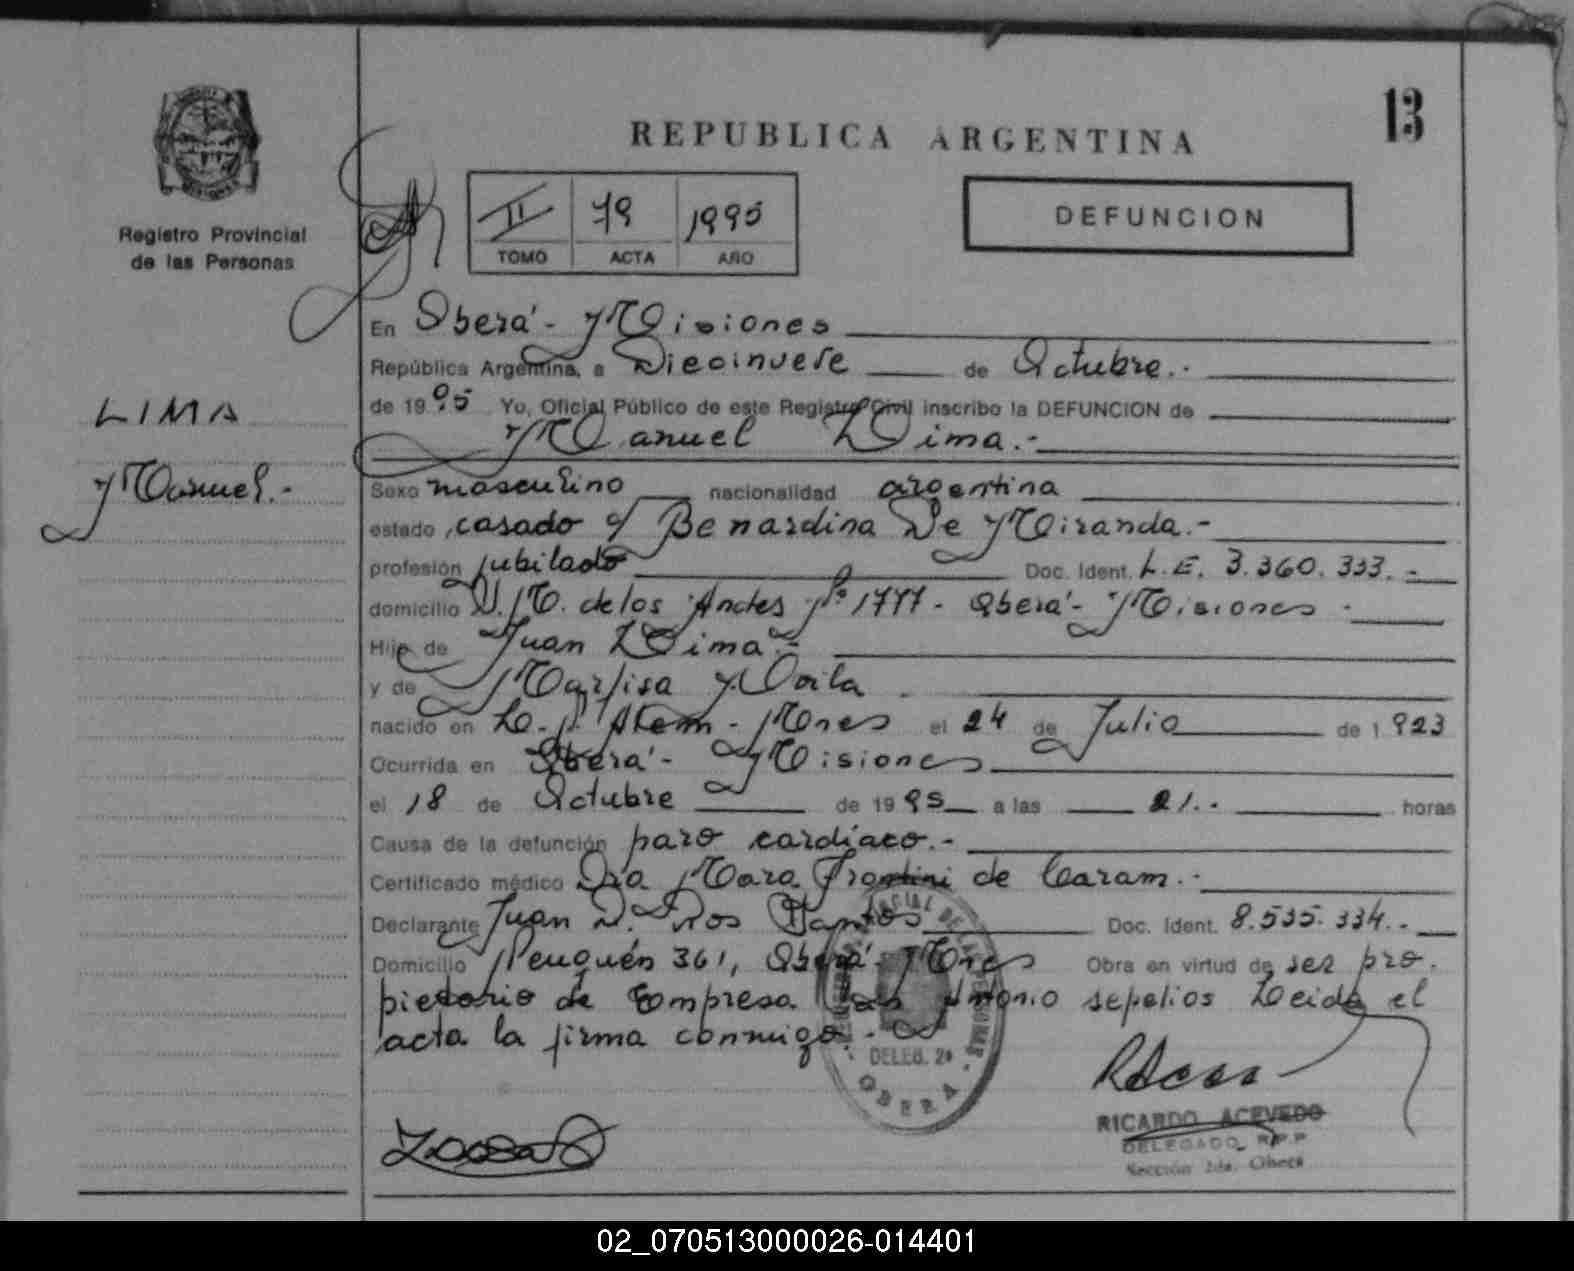 13
REPUBLICA ARGENTINA
Registro Provincial
de las Personas
II 79 1995
TOMO ACTA AÑO
DEFUNCION
En Oberá - Misiones
República Argentina, a Diecinueve de Octubre.-
de 1995 Yo, Oficial Público de este Registro Civil inscribo la DEFUNCION de
Manuel Lima.-
LIMA
Manuel.-
Sexo masculino nacionalidad argentina
estado casado c/ Benardina De Miranda.-
profesión jubilado Doc. Ident. L.E. 3.360.333.-
domicilio V. M. de los Andes Nº 1777 - Oberá - Misiones -
Hijo de Juan Lima.-
y de Marfisa
nacido en L. N. Alem - Mnes el 24 de Julio de 1.923
Ocurrida en Oberá - Misiones
el 18 de Octubre de 1995 a las 21.. horas
Causa de la defunción paro cardíaco.-
Certificado médico Dra Mara Frontini de Caram.-
Declarante Juan D. Dos Santos Doc. Ident. 8.535.334.-
Domicilio Neuquén 361, Oberá - Mnes Obra en virtud de ser pro.
pietario de Empresa San Antonio sepelios Leida el
acta la firma conmigo.-
DELEG. 2ª
OBERA
RICARDO ACEVEDO
DELEGADO R.P.P
Sección 2da. Oberá
02_070513000026-014401